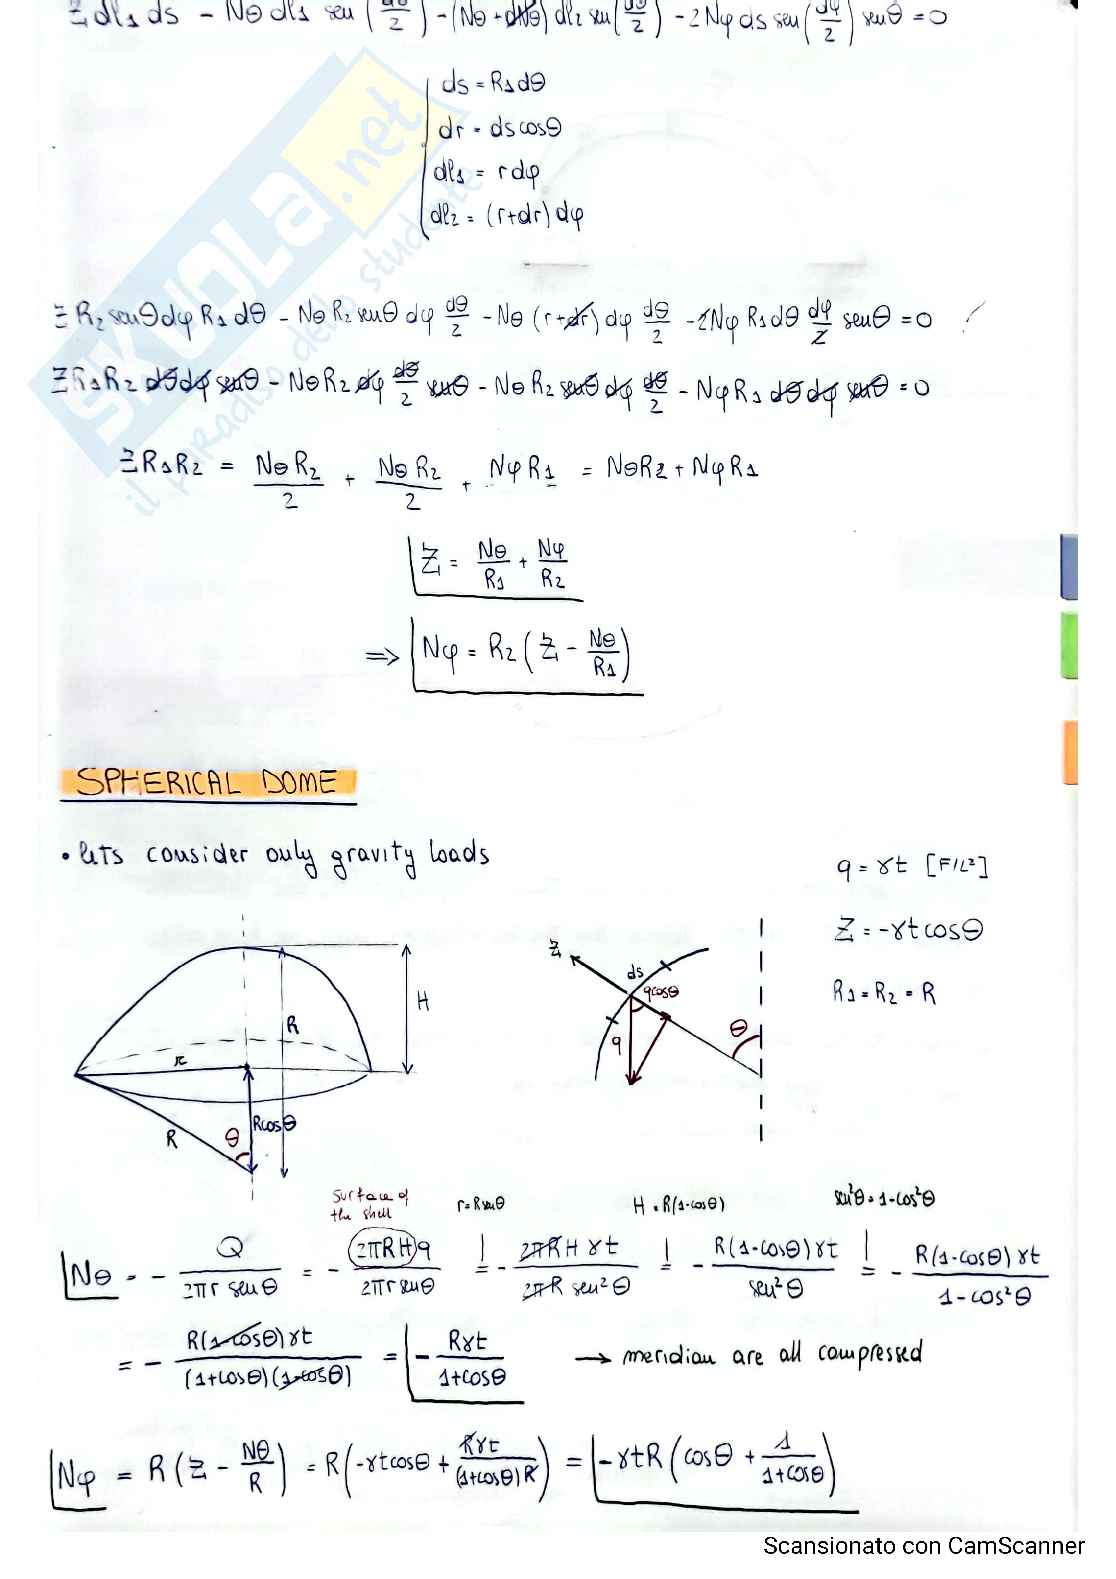 Z dl1 ds - Nθ dl1 sen(dθ/2) - (Nθ + dNθ) dl2 sen(dθ/2) - 2Nφ ds sen(dφ/2) senθ = 0
ds = R1 dθ
dr = ds cosθ
dl1 = r dφ
dl2 = (r+dr) dφ
Z R2 senθ dφ R1 dθ - Nθ R2 senθ dφ dθ/2 - Nθ (r+dr) dφ dθ/2 - 2Nφ R1 dθ dφ/2 senθ = 0
Z R1 R2 dθ dφ senθ - Nθ R2 dφ dθ/2 senθ - Nθ R2 senθ dφ dθ/2 - Nφ R1 dθ dφ senθ = 0
Z R1 R2 = Nθ R2/2 + Nθ R2/2 + Nφ R1 = Nθ R2 + Nφ R1
Z = Nθ/R1 + Nφ/R2
⇒ Nφ = R2 (Z - Nθ/R1)
SPHERICAL DOME
• lets consider only gravity loads
q = γt [F/L²]
Z = -γt cosθ
R1 = R2 = R
H
R
r
R cosθ
θ
R
Z
ds
q cosθ
q
θ
surface of the shell
r = R senθ
H = R(1-cosθ)
sen²θ = 1-cos²θ
Nθ = - Q/(2πr senθ) = - (2πRH)q/(2πr senθ) = - 2πRH γt/(2πR sen²θ) = - R(1-cosθ)γt/sen²θ = - R(1-cosθ)γt/(1-cos²θ)
= - R(1-cosθ)γt/((1+cosθ)(1-cosθ)) = - Rγt/(1+cosθ) → meridian are all compressed
Nφ = R(Z - Nθ/R) = R(-γt cosθ + Rγt/((1+cosθ)R)) = -γtR(cosθ + 1/(1+cosθ))
SKUOLA.net
il paradiso dello studente
Scansionato con CamScanner